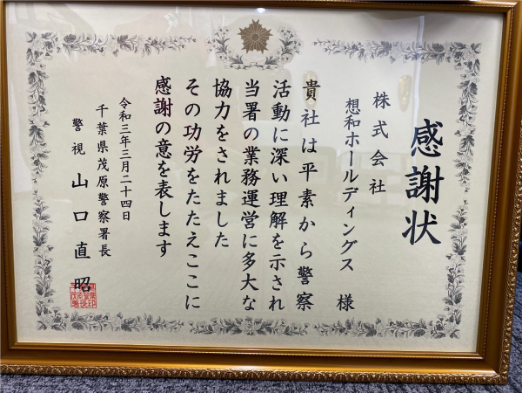 感謝状
株式会社
想和ホールディングス 様
貴社は平素から警察
活動に深い理解を示され
当署の業務運営に多大な
協力をされました
その功労をたたえここに
感謝の意を表します
令和三年三月二十四日
千葉県茂原警察署長
警視 山口直昭